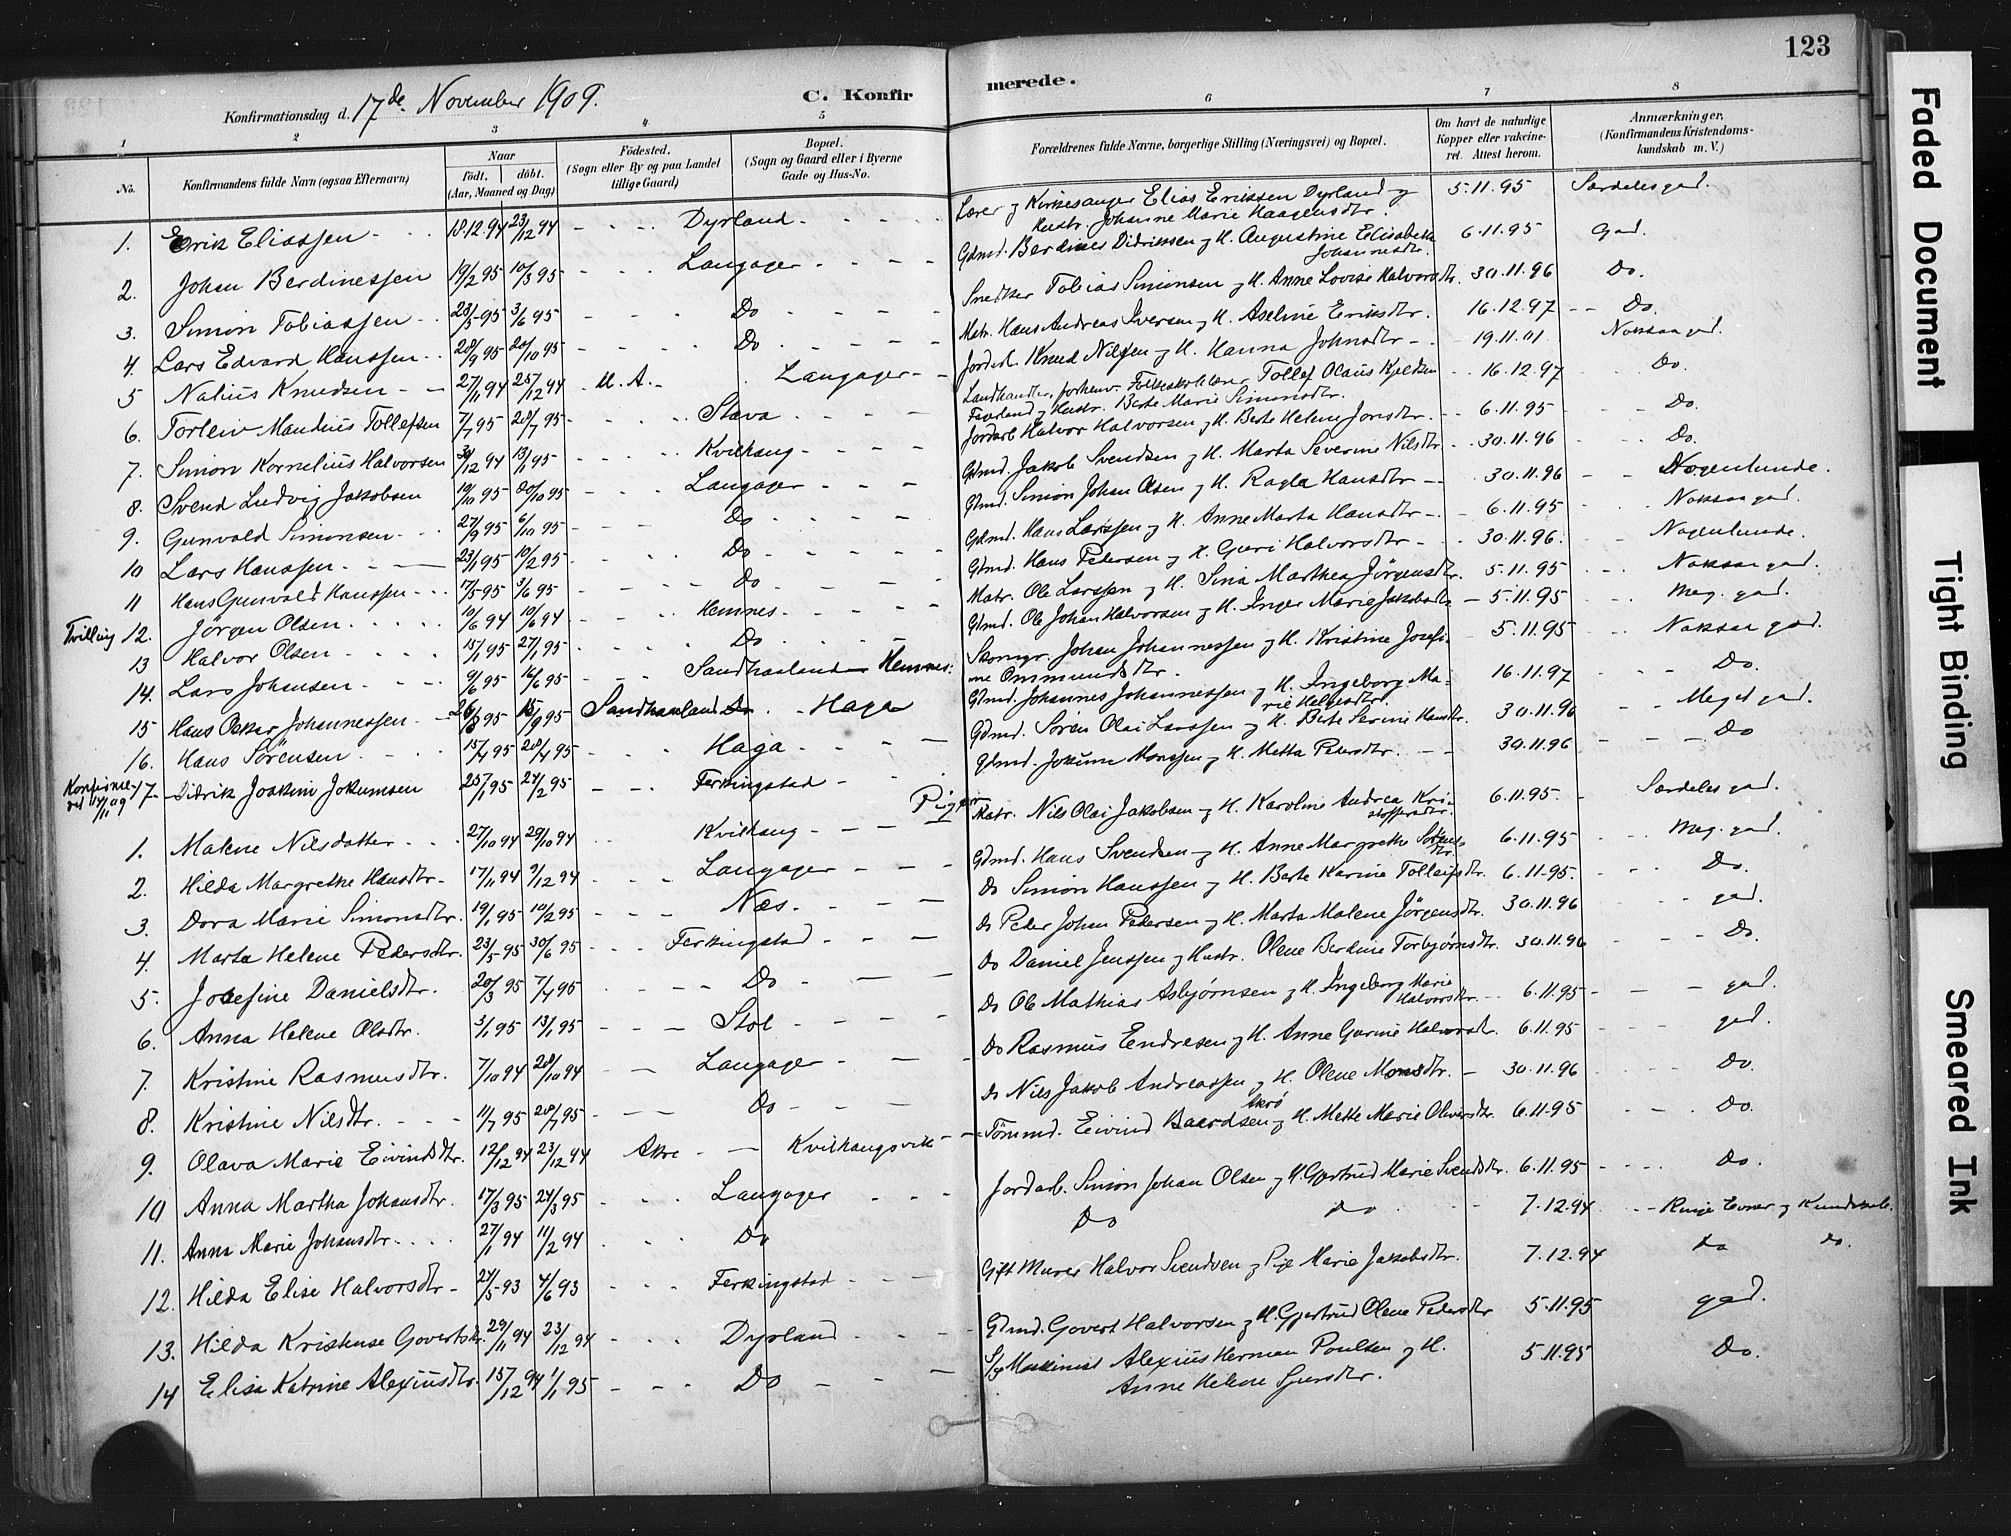 123
Konfirmationsdag d. 17de November 1909.
C. Konfirmerede.
1 2 3 4 5 6 7 8
No. Konfirmandens fulde Navn (ogsaa Efternavn) Naar födt. döbt. (Aar, Maaned og Dag) Födested. (Sogn eller By og paa Landet tillige Gaard) Bopæl. (Sogn og Gaard eller i Byerne Gade og Hus-No. Forældrenes fulde Navne, borgerlige Stilling (Næringsvei) og Bopæl. Om havt de naturlige Kopper eller vakcineret. Attest herom. Anmærkninger. (Konfirmandens Kristendomskundskab m. V.)
1. Erik Eliassen 18.12.94 23/12 94 Dyrland Lærer og Kirkesanger Elias Eriksen Dyrland og Hustr. Johanne Marie Haagensdtr. 5.11.95 Særdeles god.
2. Johan Berdinessen 19/2 95 10/3 95 Langager Gdmd. Berdines Didriksen og H. Augustine Elisabeth Johannesdtr. 6.11.95 God.
3. Simon Tobiassen 23/5 95 3/6 95 Do Snedker Tobias Simonsen og H. Anne Lovise Halvorsdtr. 30.11.96 Do.
4. Lars Edvard Hanssen 28/9 95 20/10 95 Do Matr. Hans Andreas Iversen og H. Aseline Eriksdtr. 16.12.97 Do.
5 Nalius Knudsen 27/11 94 25/12 94 U. A. Langager Jordarb. Knud Nilsen og H. Hanna Johnsdtr 19.11.01 Noksaa god.
6. Torleiv Mandius Tollefsen 7/7 95 28/7 95 Stava Landhandler, forhenv. Folkeskolelærer Tollef Olaus Kjeldsen og Hustr. Berte Marie Simonsdtr. 16.12.97 Do.
7. Simon Kornelius Halvorsen 30/12 94 13/1 95 Kvilhaug Jordarb Halvor Halvorsen og H. Berte Helene Jonsdtr. 6.11.95 Do.
8. Svend Ludvig Jakobsen 19/10 95 20/10 95 Langager Gdmd. Jakob Svendsen og H. Marta Severine Nilsdtr 30.11.96 Do.
9. Gunvald Simonsen 27/9 95 6/10 95 Do Gdmd. Simon Johan Olsen og H. Ragla Hansdtr 30.11.96 Nogenlunde.
10 Lars Hanssen 23/1 95 10/2 95 Do Gdmd. Hans Larssen og H. Anne Marta Hansdtr 6.11.95 Noksaa god.
11 Hans Gunvald Hanssen 17/5 95 3/6 95 Do Gdmd. Hans Pedersen og H. Guri Halvorsdtr 30.11.96. Nogenlunde.
Tvilling 12. Jörgen Olsen 10/6 94 10/6 94 Hemnes Matr. Ole Larssen og H. Sina Marthea Jörgensdtr. 5.11.95 Noksaa god.
13 Halvor Olsen 15/1 95 27/1 95 Do Gdmd. Ole Johan Halvorsen og H. Inger Marie Jakobsdtr 5.11.95 Meg. god.
14. Lars Johansen 9/6 95 16/6 95 Sandhaaland Hemnes. Skomgr. Johan Johannessen og H. Kristine Josefine Ommundsdtr. 5.11.95 Noksaa god.
15 Hans Oskar Johannessen 26/8 95 15/9 95 Sandhaaland Haga Gdmd. Johannes Johannessen og H. Ingeborg Marie Helgesdtr. 16.11.97 Do.
16. Hans Sørensen 15/4 95 28/4 95 Haga Gdmd. Soren Olai Larssen og H. Berte Serine Hansdtr. 30.11.96 Meget god.
17. Didrik Joakim Jokumsen 25/1 95 24/2 95 Ferkingstad Gdmd. Jokum Monssen og H. Metta Pedersdtr. 30.11.96 Do
Piger
1. Malene Nilsdatter 27/10 94 29/10 94 Kvilhaug Matr. Nils Olai Jakobsen og H. Karoline Andrea Kristoffersdtr. 6.11.95. Særdeles god.
2. Hilda Margrethe Hansdtr 17/11 94 9/12 94 Langager Gdmd. Hans Svendsen og H. Anne Margrethe 6.11.95 Meg. god.
3. Dora Marie Simonsdtr. 19/1 95 10/2 95 Næs. Do Simon Hanssen og H. Berte Karine Tolleifsdtr. 6.11.95. Do.
4. Marta Helene Pedersdtr. 23/5 95 30/6 95 Ferkingstad Do Peder Johan Pedersen og H. Marta Malene Jörgensdtr. 30.11.96 god.
5. Josefine Danielsdtr. 20/3 95 7/4 95 Do Do Daniel Jenssen og Hustr. Olene Berdine Torbjørnsdtr. 30.11.96 Do.
6. Anna Helene Olsdtr. 3/1 95 13/1 95 Stol Do Ole Mathias Asbjørnsen og H. Ingeborg Marie Halvorsdtr. 6.11.95 god.
7. Kristine Rasmusdtr. 7/10 94 28/10 94 Langager Do Rasmus Endresen og H. Anne Gurine Halvorsdtr. 6.11.95 god.
8. Kristine Nilsdtr. 11/7 95 28/7 95 Do Do Nils Jakob Andreassen og H. Olene Monsdtr. 30.11.96 Do
9. Olava Marie Eivindsdtr. 12/12 94 23/12 94 Akre Kvilhaugsvik Tömmd. Eivind Baardsen Akrö og H. Mette Marie Oliversdtr. 6.11.95 Do.
10 Anna Martha Johansdtr. 17/3 95 24/3 95 Langager Jordarb. Simon Johan Olsen og H. Gjertrud Marie Svendsdtr. 6.11.95 Do.
11. Anna Marie Johansdtr. 27/1 94 11/2 94 Do Do do 7.12.94 Ringe Evner og Kundskab.
12. Hilda Elise Halvorsdtr 24/5 93 4/6 93 Ferkingstad Gift Murer Halvor Svendsen og Pige Marie Jakobsdtr. 7.12.94 do do.
13. Hilda Kristense Govertsdtr. 29/11 94 23/12 94 Dyrland Gdmd. Govert Halvorsen og H. Gjertrud Olene Pedersdtr 5.11.95 god.
14 Elisa Katrine Alexiusdtr. 15/12 94 1/1 95 Do Maskinist Alexius Herman Poulsen og H. Anne Helene Sjursdtr. 5.11.95 Do.
Faded Document
Tight Binding
Smeared Ink